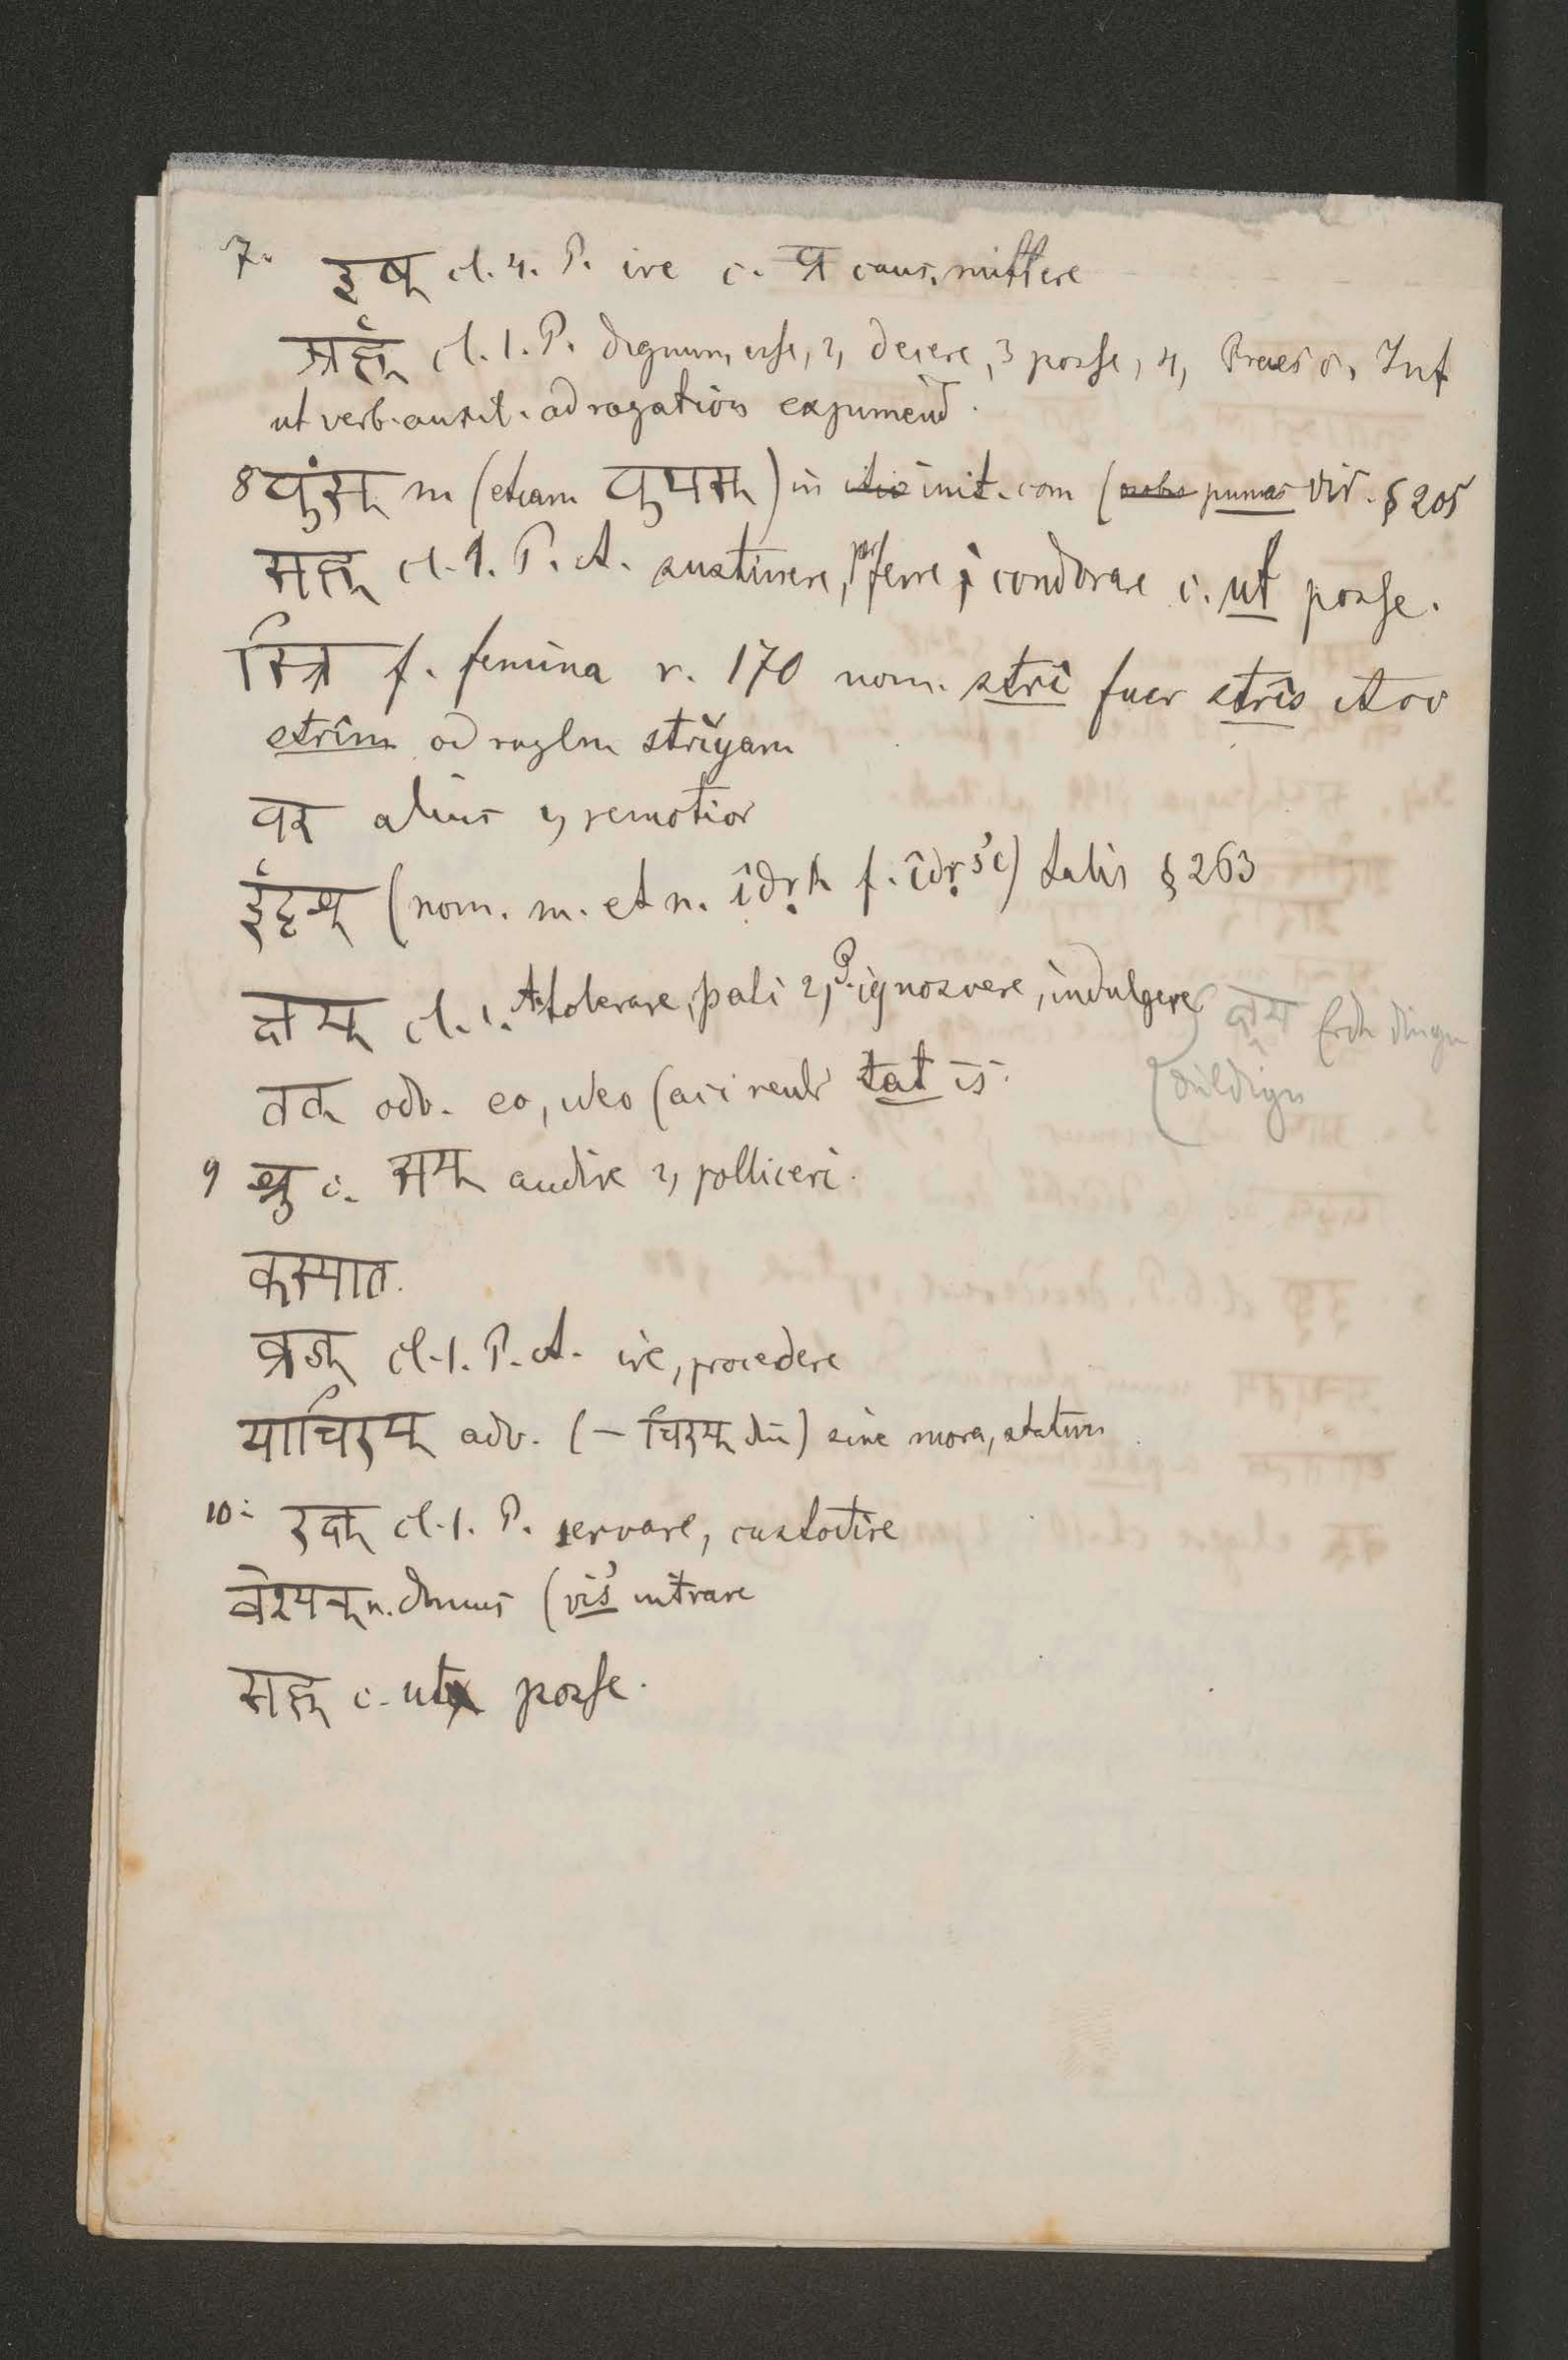 7. इष् cl. 4. P. ire c. प्र caus. mittere
अर्ह् cl. 1. P. dignum, esse, 2, decere, 3 posse, 4, Praes c. Inf
ut verb. auxil. ad rogation exprimend.
8 पुंस् m (etiam पुमस्) in init. com ( pumas vir. § 205
सह् cl. 1. P. A. sustinere, perferre, condonare c. ut posse.
स्त्रि f. femina r. 170 nom. strî fuer strîs
strîm od striyam
पर alius 2, remotior
ईदृश् (nom. m. et n. îdṛk f. îdṛs'i) talis § 263
क्षम् cl. 1. A. tolerare, pati 2, P. ignoscere, indulgere क्षम Erde
duldign
तत् adv. eo, ideo (acc neutr tat is.
9 श्रु c. सम् audire 2, polliceri.
कस्मात.
व्रज् cl. 1. P. A. ire, procedere
माचिरम् adv. (– चिरम् diu) sine mora, statim
10. रक्ष् cl. 1. P. servare, custodire
वेश्मन् n. domus (vis' intrare
सह् c. ut posse.